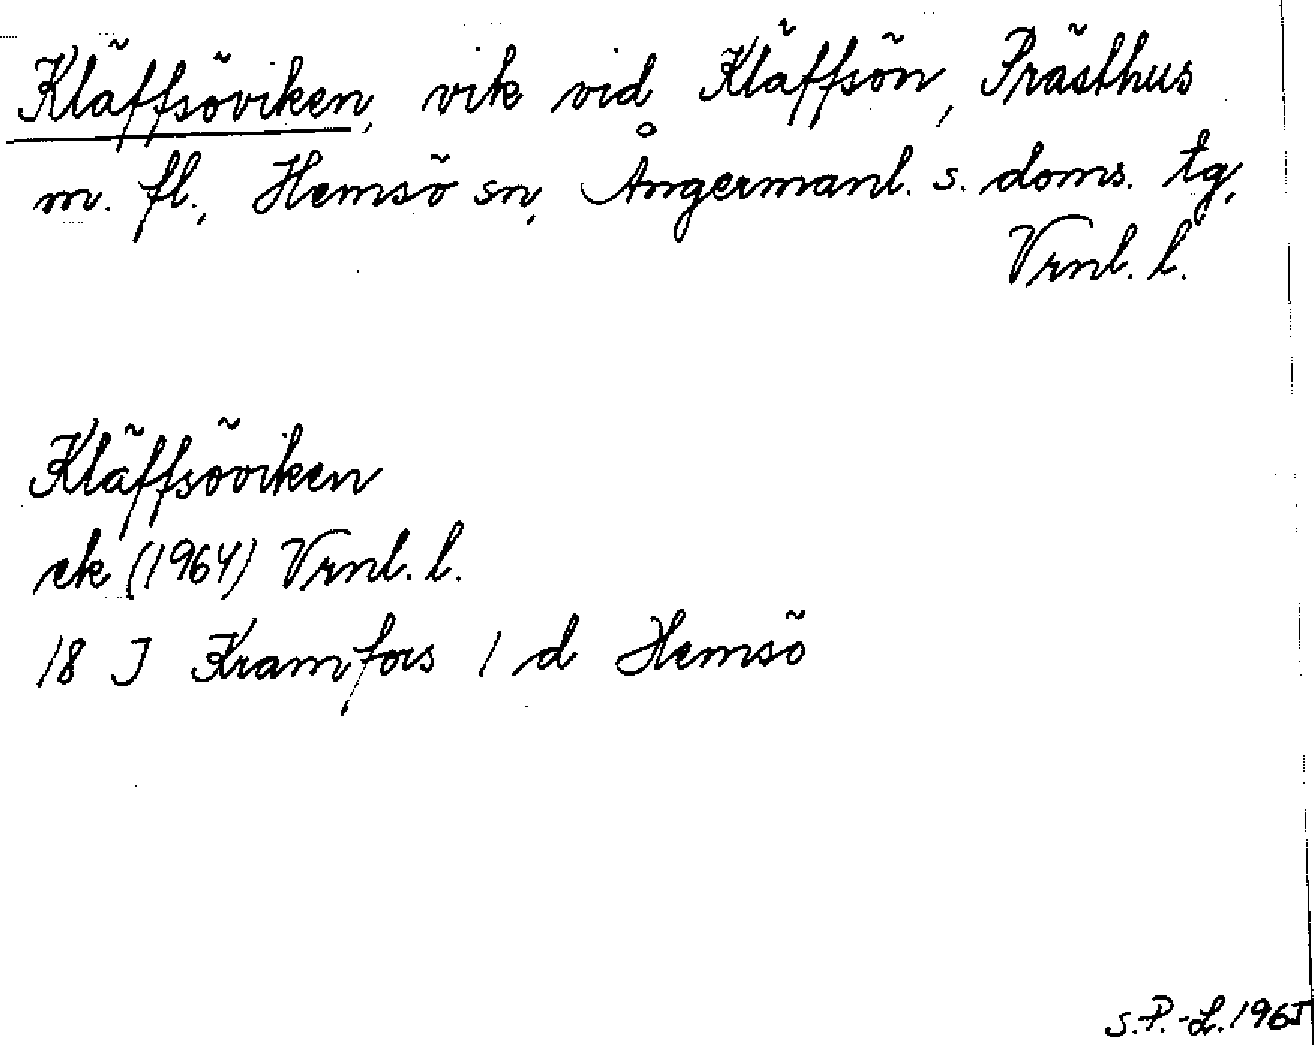 Kläffsöviken, vik vid Kläffsön, Prästhus
m. fl., Hemsö sn, Ångermanl. s. doms. tg,
Vrnl. l.
Kläffsöviken
ek (1964) Vrnl. l.
18 J Kramfors 1 d Hemsö
S.P.-L. 1965